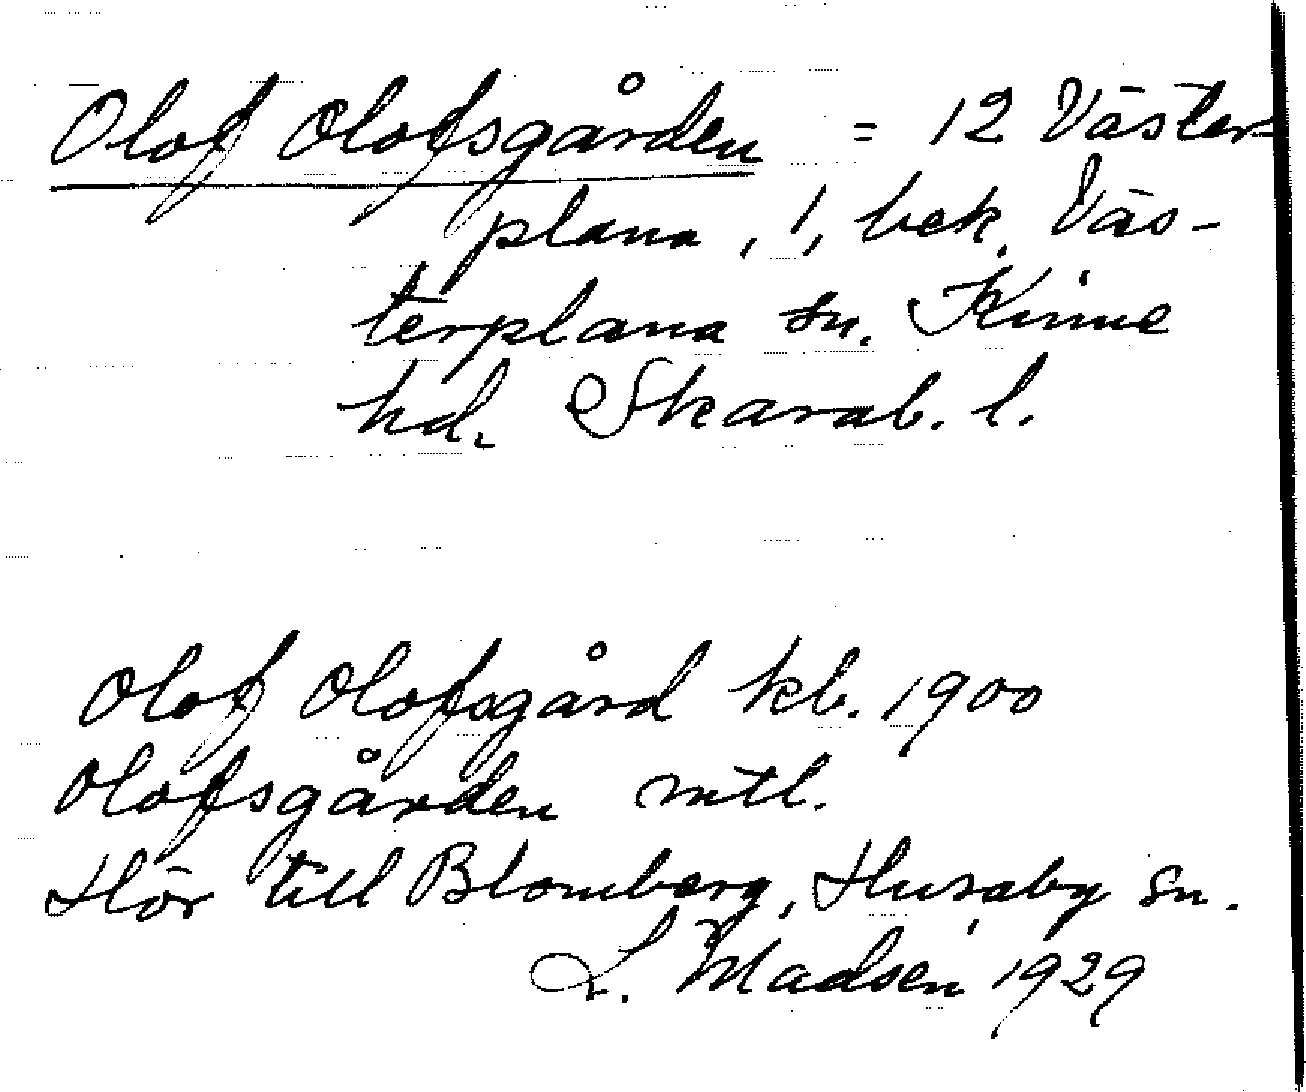 Olof Olofsgården = 12 Väster-
plana, 1, bek. Väs-
terplana sn. Kinne
hd. Skarab. l.
Olof Olofsgård kb. 1900
Olofsgården mtl.
Hör till Blomberg, Husaby sn.
L. Madsén 1929